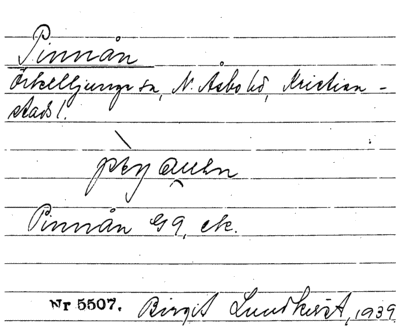 Pinnån
Örkelljunga sn, N. Åsbo hd, Kristian-
stads l.
Pinnån G 9, ek.
Nr 5507. Birgit Lundkvist, 1939